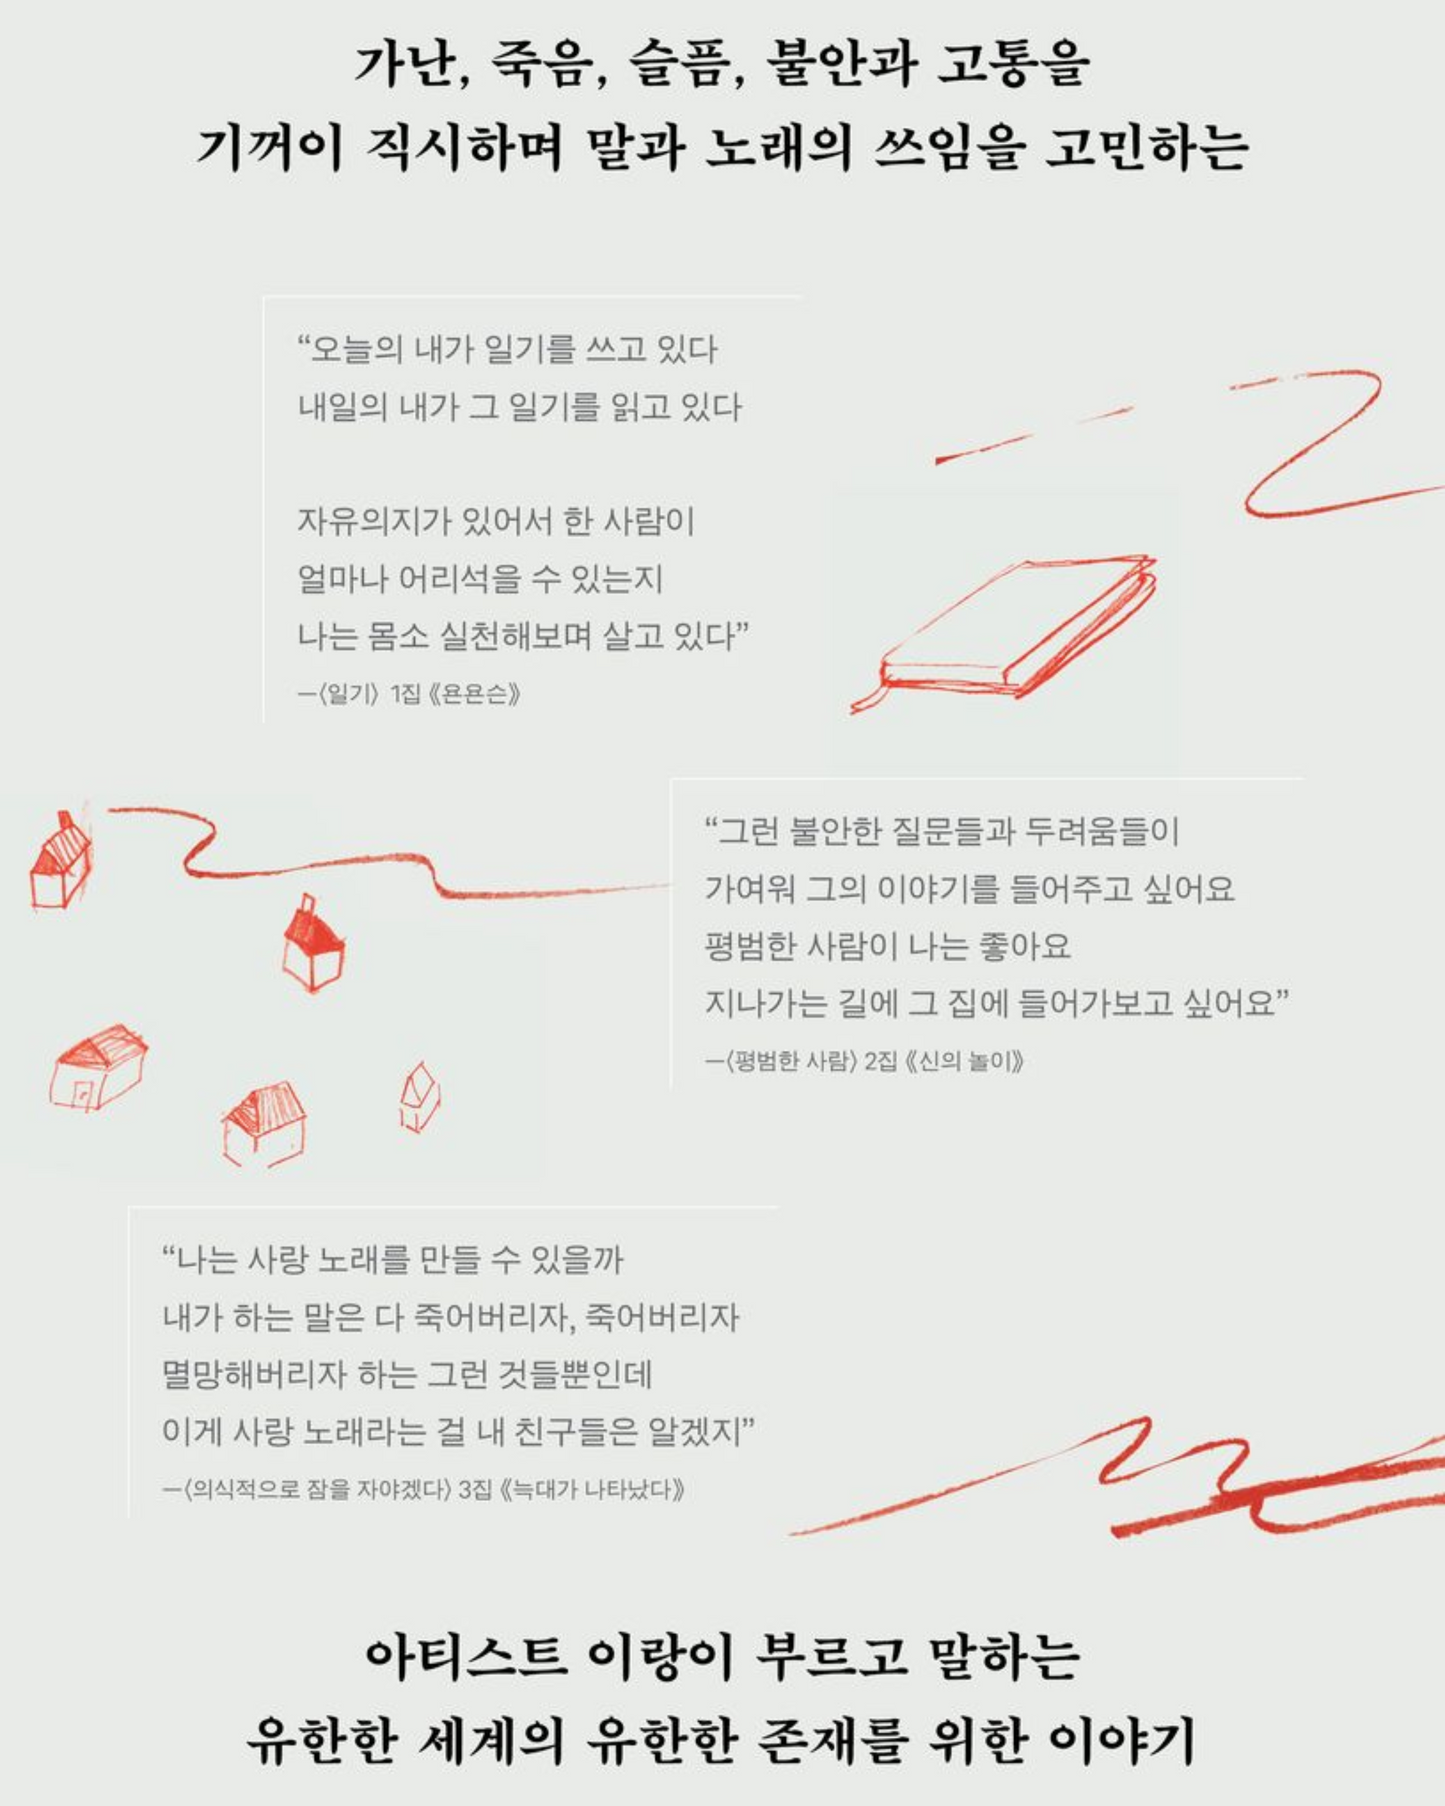 가난, 죽음, 슬픔, 불안과 고통을
기꺼이 직시하며 말과 노래의 쓰임을 고민하는
“오늘의 내가 일기를 쓰고 있다
내일의 내가 그 일기를 읽고 있다
자유의지가 있어서 한 사람이
얼마나 어리석을 수 있는지
나는 몸소 실천해보며 살고 있다”
—〈일기〉 1집 《욘욘슨》
“그런 불안한 질문들과 두려움들이
가여워 그의 이야기를 들어주고 싶어요
평범한 사람이 나는 좋아요
지나가는 길에 그 집에 들어가보고 싶어요”
—〈평범한 사람〉 2집 《신의 놀이》
“나는 사랑 노래를 만들 수 있을까
내가 하는 말은 다 죽어버리자, 죽어버리자
멸망해버리자 하는 그런 것들뿐인데
이게 사랑 노래라는 걸 내 친구들은 알겠지”
—〈의식적으로 잠을 자야겠다〉 3집 《늑대가 나타났다》
아티스트 이랑이 부르고 말하는
유한한 세계의 유한한 존재를 위한 이야기